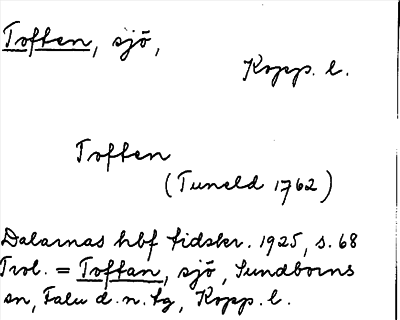 Toften, sjö,
Kopp. l.
Toften
(Tuneld 1762)
Dalarnas hbf tidskr. 1925, s. 68
Trol. = Toftan, sjö, Sundborns
sn, Falu d.n. tg, Kopp. l.